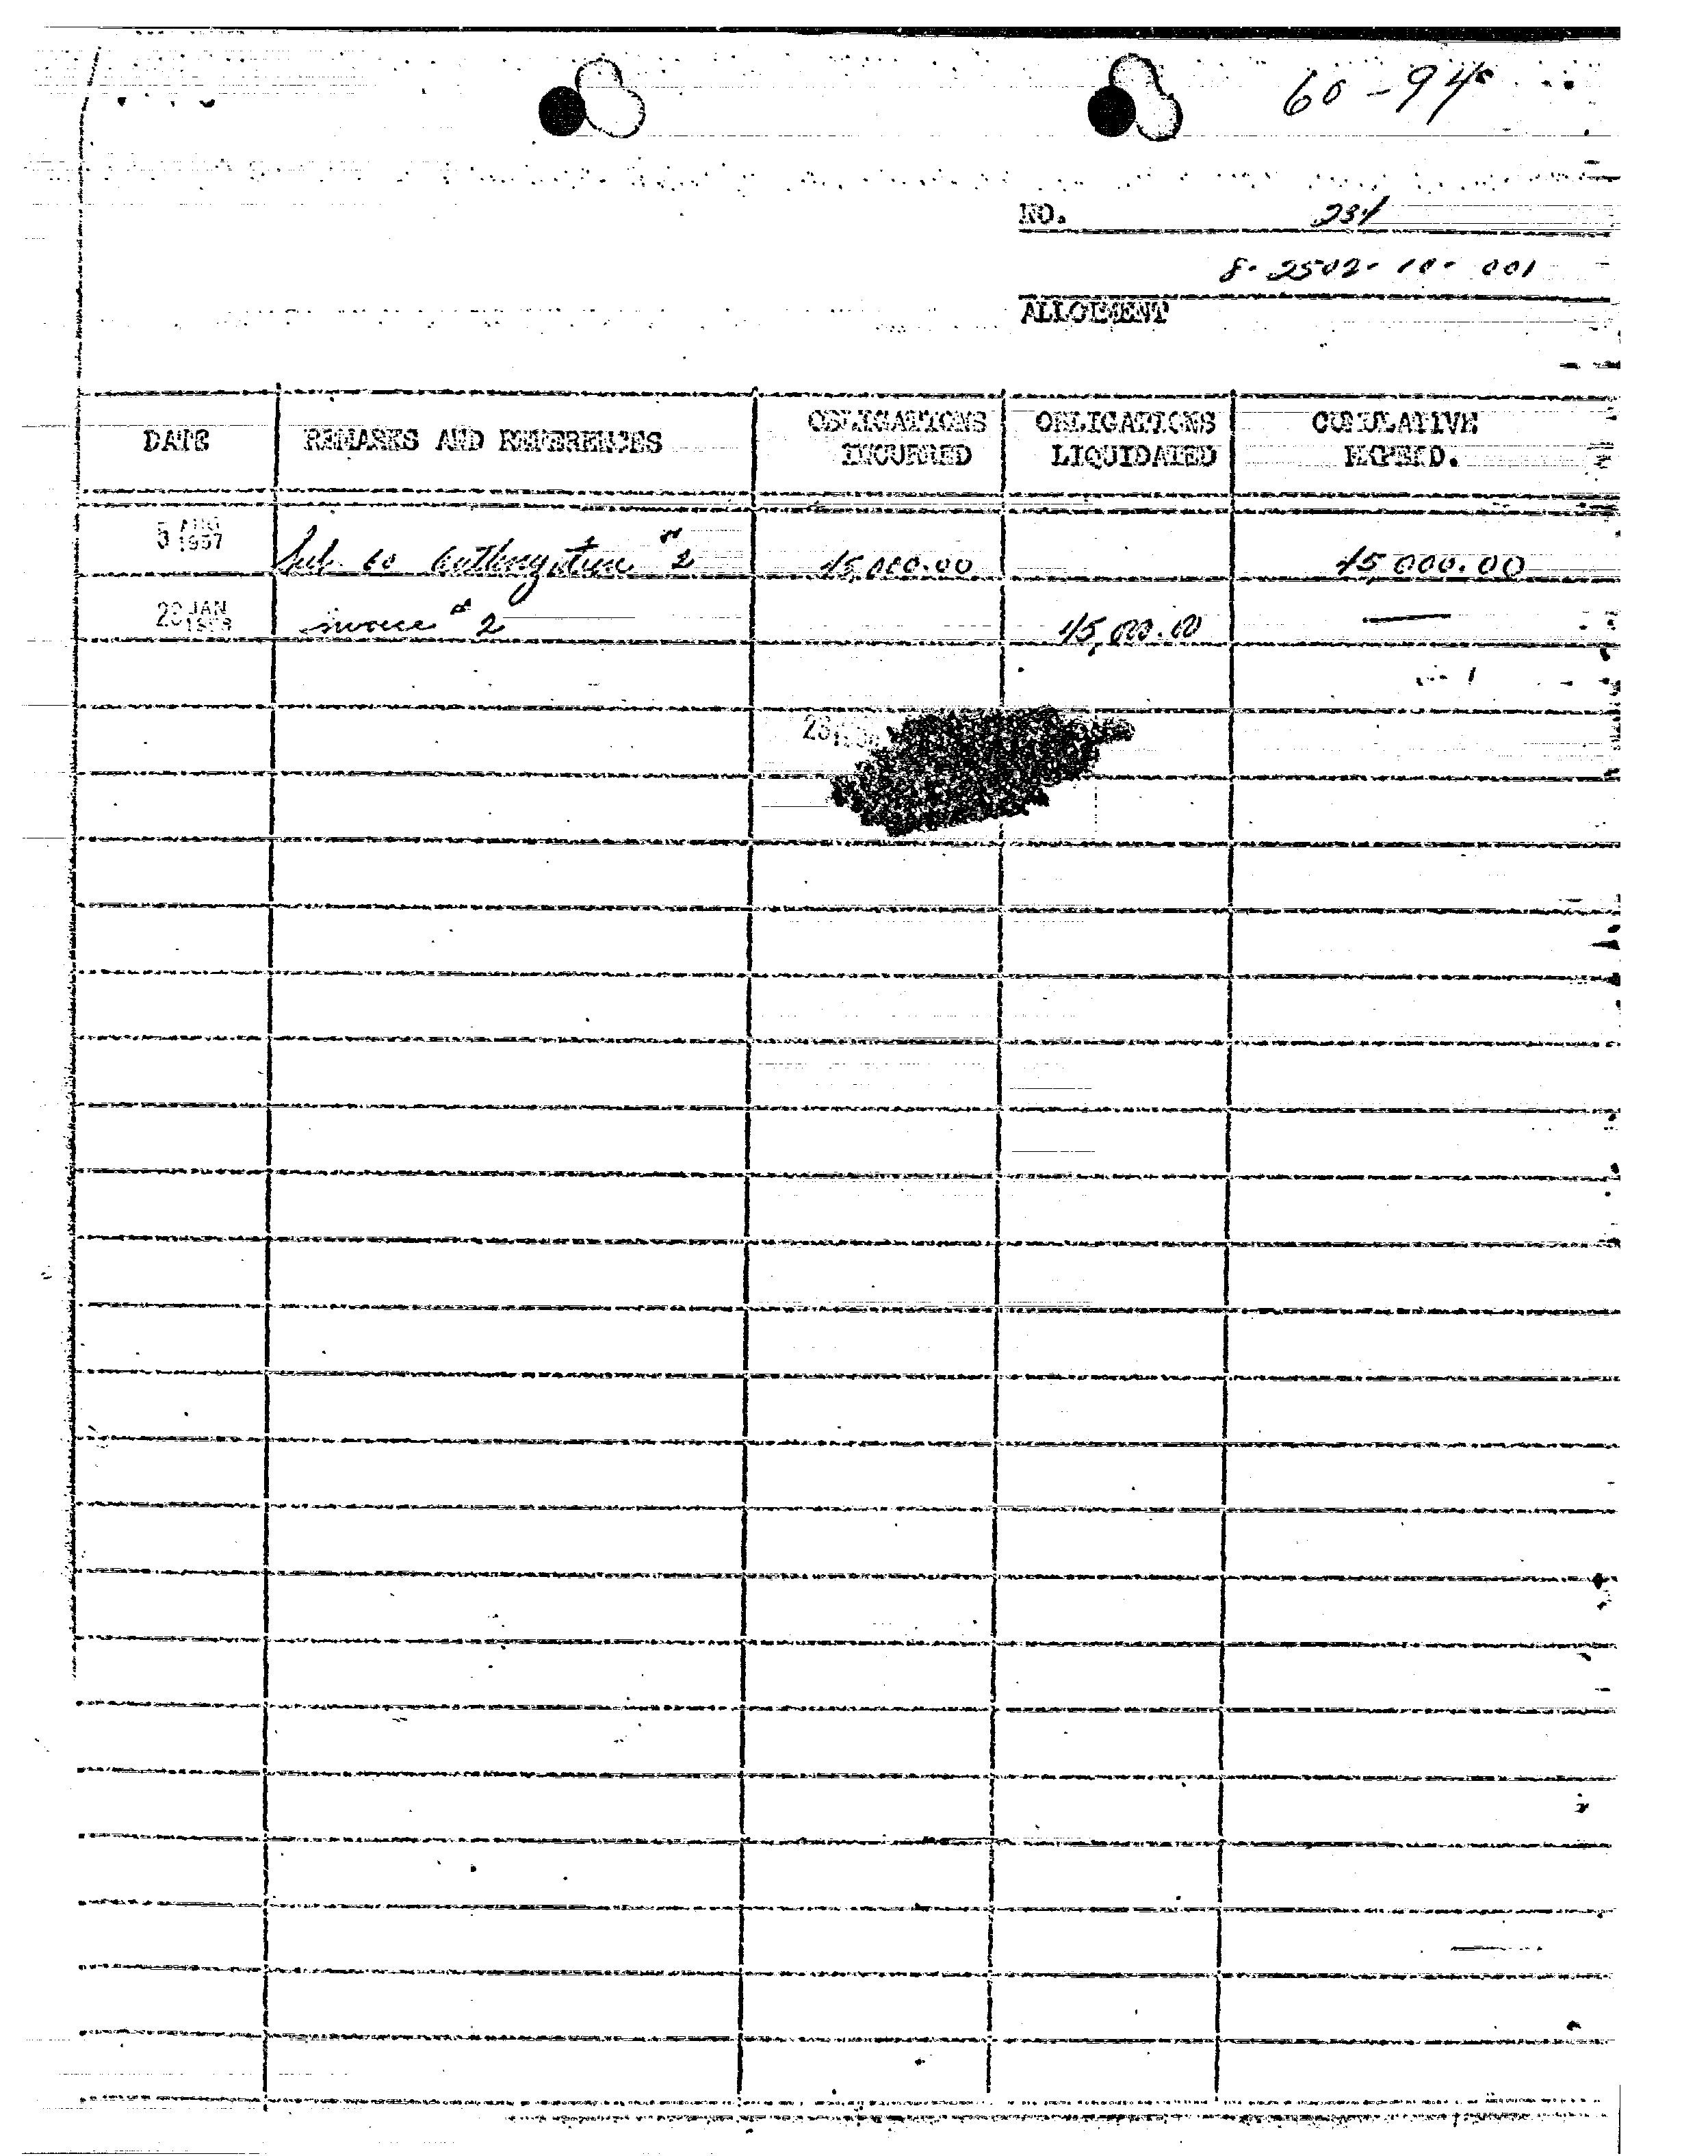 60-94
NO. 234
8-2502-10-001
ALLOTMENT
DATE REMARKS AND REFERENCES OBLIGATIONS INCURRED OBLIGATIONS LIQUIDATED CUMULATIVE EXPEND.
5 AUG 1957 Sub. 60 authorization #2 45,000.00 45,000.00
JAN invoice #2 45,000.00 —